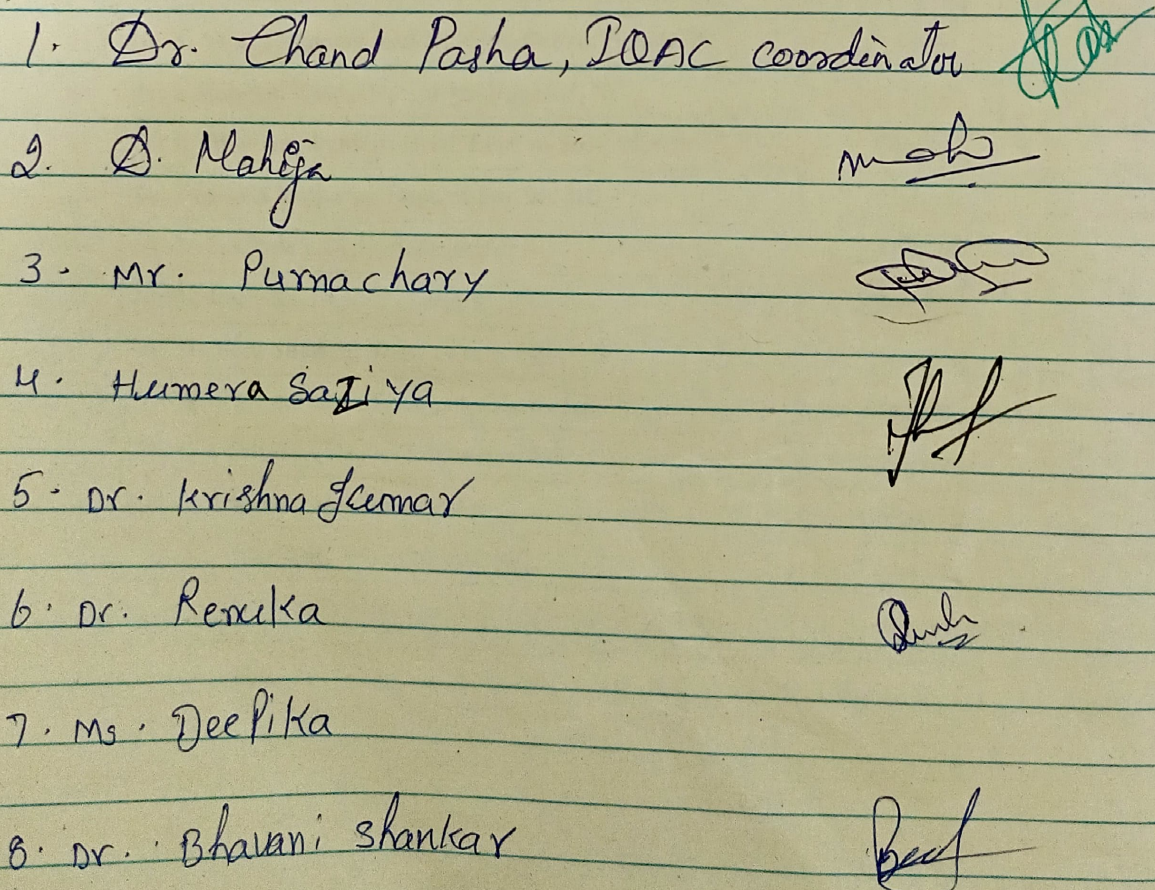 1. Dr. Chand Pasha, IQAC coordinator
2. D. Maheja
3. Mr. Purnachary
4. Humera Saziya
5. Dr. Krishna Kumar
6. Dr. Renuka
7. Ms. Deepika
8. Dr. Bhavani Shankar